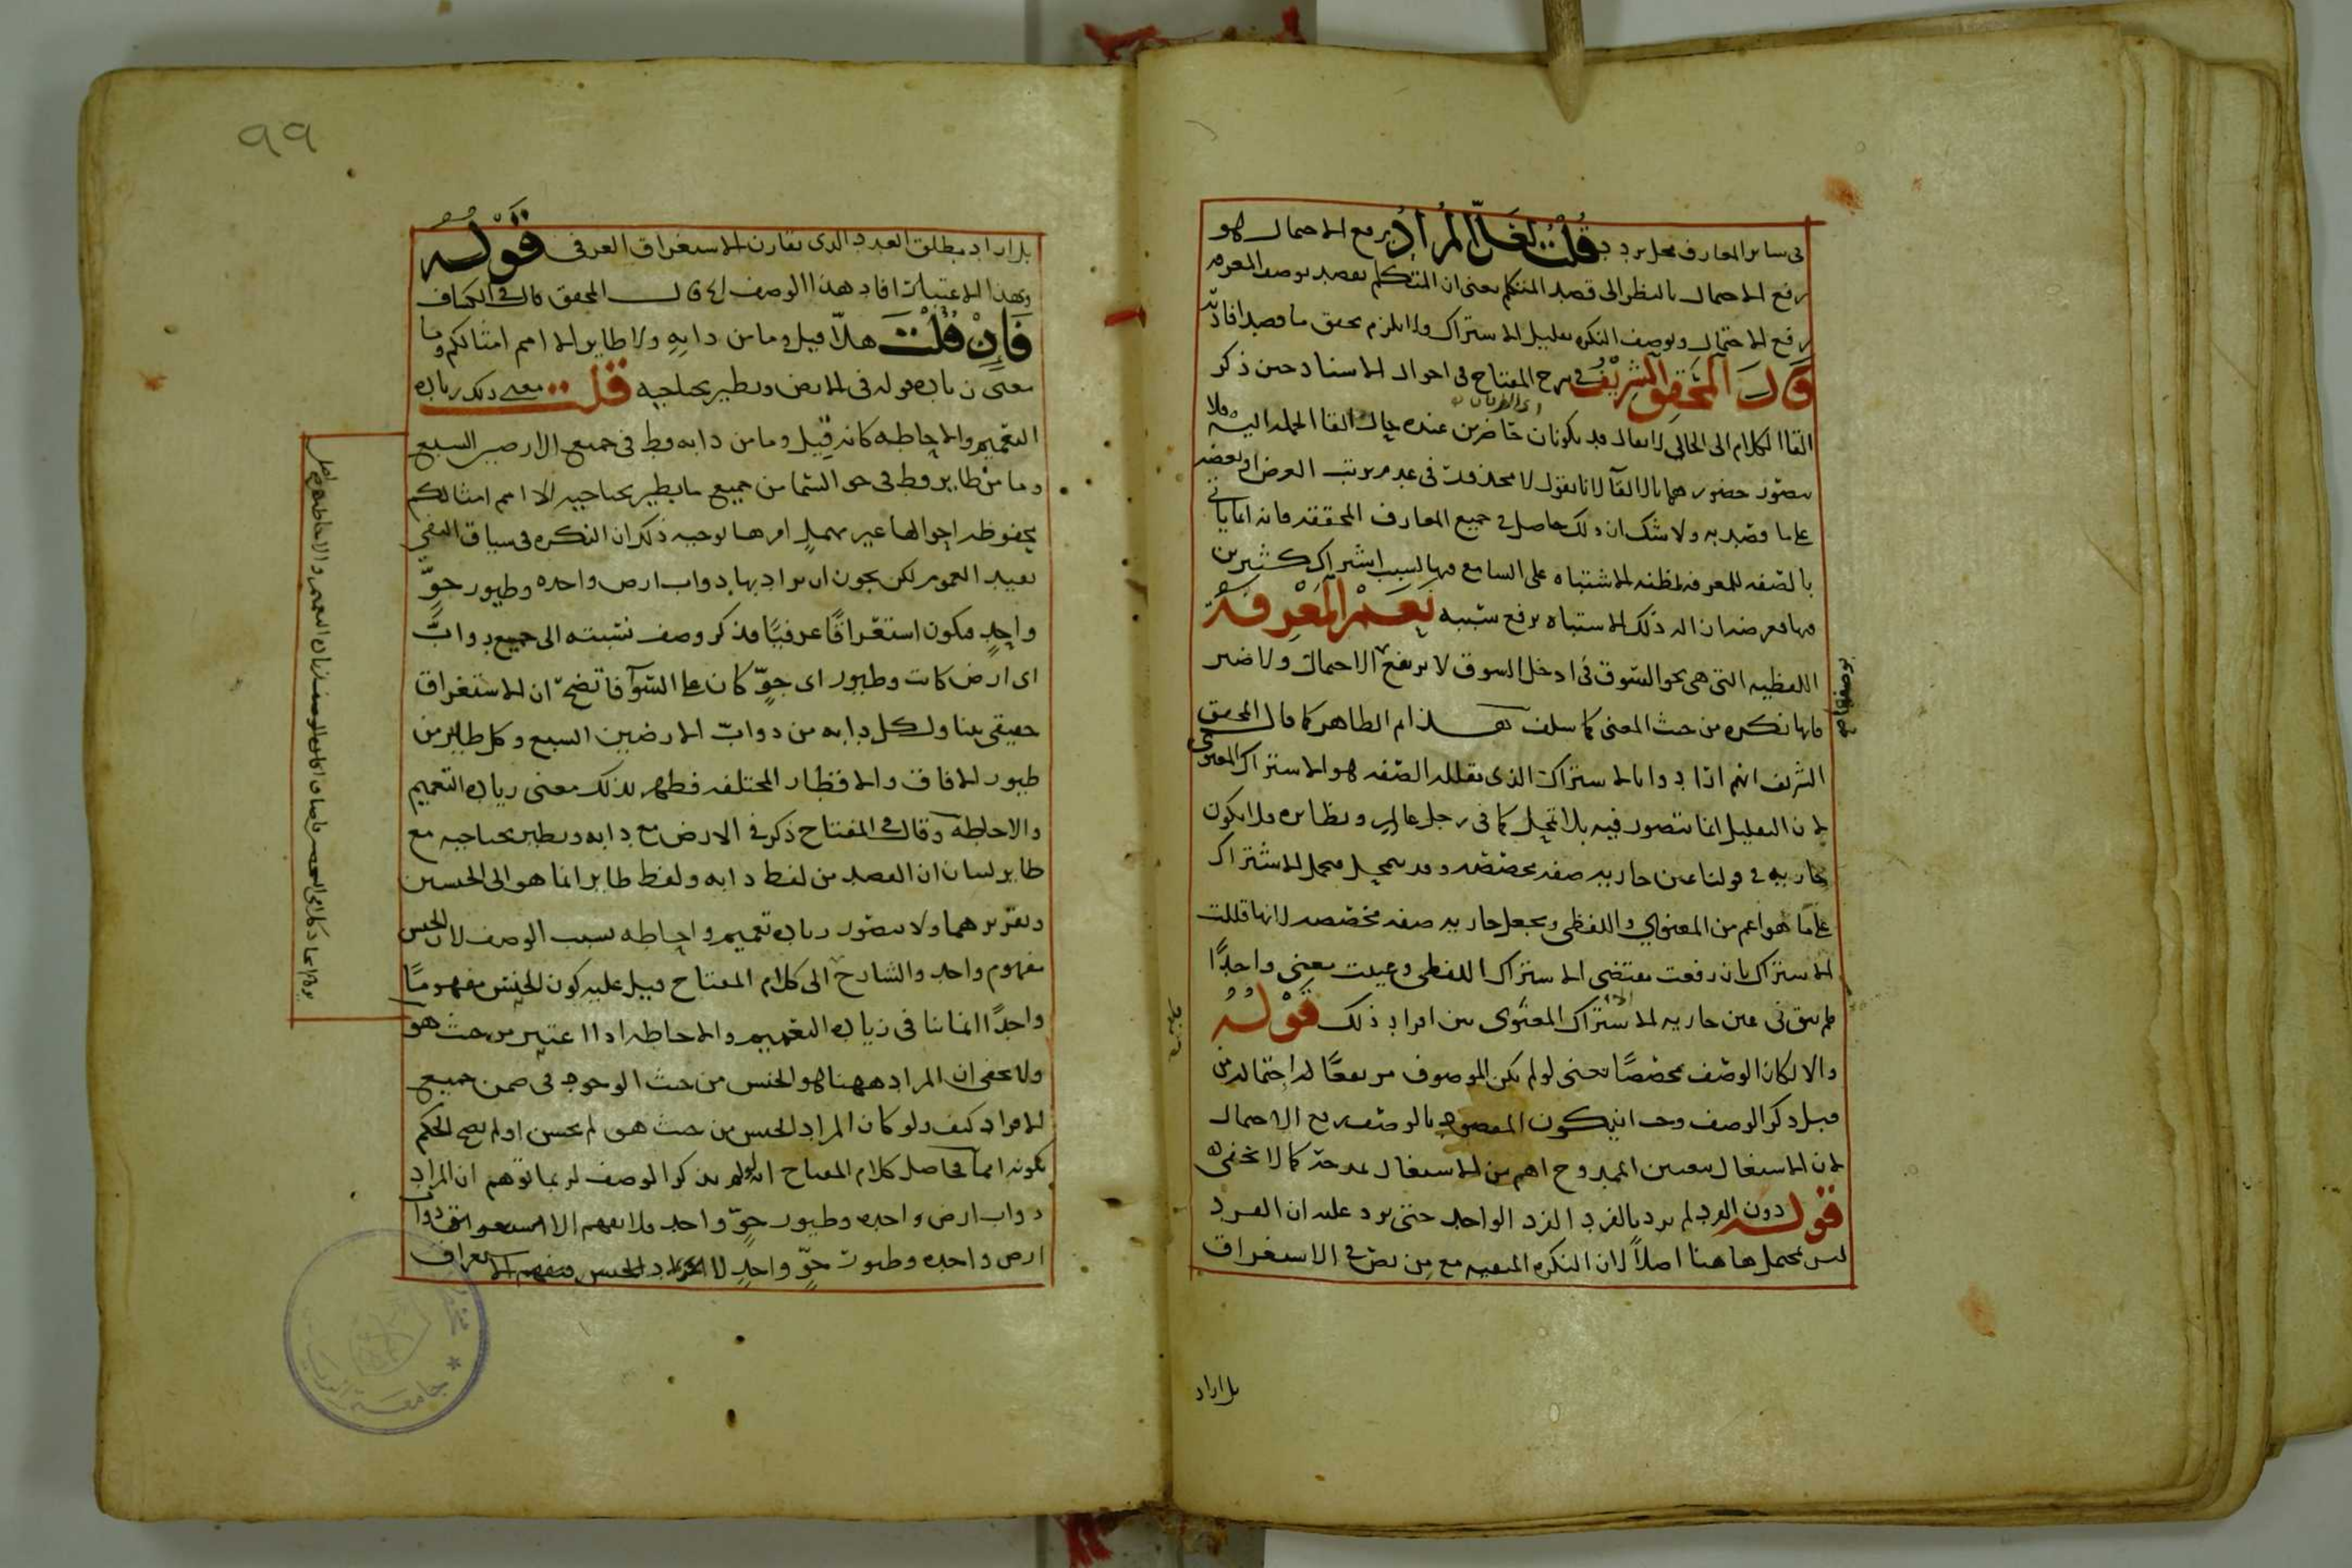 في سائر المعارف محل تردد قلت لعل المراد برفع الاحتمال هو
رفع الاحتمال بالنظر الى قصد المتكلم يعنى ان المتكلم يقصد بوصف المعرفه
رفع الاحتمال وبوصف النكره تقليل الاشتراك ولا يلزم تحقق ما قصد افادته
قال المحقق الشريف في شرح المفتاح في احوال الاسناد حين ذكر
القا الكلام الى الخالى لا يقال قد يكونان حاضرين عنده حال القا الجمله اليه فلا
يتصور حضورهما بالالقآ لانا نقول لا محذور في عدم ترتب الغرض او بعضه
على ما قصد به ولا شك ان ذلك حاصل في جميع المعارف المحققه فانه انما ياتي
بالصفه للمعرفه لمظنه الاشتباه على السامع فيها بسبب اشتراك كثيرين
فيها فغرضه ازاله ذلك الاشتباه برفع سببه نعم المعرفة
اللفظيه التى هى نحو السوق في ادخل السوق لا يرتفع الاحتمال ولا ضير
فانها نكره من حيث المعنى كما سلف هذا ثم الظاهر كما قال المحقق
الشريف انهم ارادوا بالاشتراك الذى تقلله الصفه هو الاشتراك المعنوى
لان التقليل انما يتصور فيه بلا تمحل كما في رجل عالم ونظائره فلا يكون
جاريه في قولنا عين جاريه صفه مخصصه وقد يتمحل فيحمل الاشتراك
على ما هو اعم من المعنوي واللفظى ويجعل جاريه صفه مخصصه لانها قللت
الاشتراك بان رفعت مقتضى الاشتراك اللفظى وعينت معنى واحدًا
فلم يبق في عين جاريه الا الاشتراك المعنوى بين افراد ذلك قوله
والا لكان الوصف مخصصًا يعنى لو لم يكن الموصوف مرتفعًا له احتمالدين
قبل ذكر الوصف وجب ان يكون المقصود بالوصف رفع الاحتمال
لان الاشتغال بتعيين الممدوح اهم من الاشتغال بمدحه كما لا يخفى
قوله دون الفرد لم يرد بالفرد الفرد الواحد حتى يرد عليه ان الفرد
ليس بمحتمل هاهنا اصلاً لان النكره المنفيه مع من نص في الاستغراق
بل اراد
٩٩
بل اراد مطلق العدد الذى يقارن الاستغراق العرفى قوله
وبهذا الاعتبار افاد هذا الوصف الخ قال المحقق قال في الكشاف
فإن قلت هلا قيل وما من دابه ولا طاير الا امم امثالكم وما
معنى زياده قوله في الارض ويطير بجناحيه قلت معنى ذلك زياده
التعميم والاحاطه كانه قيل وما من دابه قط في جميع الارضين السبع
وما من طاير قط في جو السما من جميع ما يطير بجناحيه الا امم امثالكم
محفوظه احوالها غير مهمل امرها توجيه ذلك ان النكره في سياق النفى
تفيد العموم لكن يجوز ان يراد بها دواب ارض واحده وطيور جوّ
واحدٍ فيكون استغراقًا عرفيًا فذكر وصف نسبته الى جميع دوابّ
اى ارض كانت وطيور اى جوّ كان على السوآ فاتضح ان الاستغراق
حقيقى يتناول كل دابه من دوابّ الارضين السبع وكل طاير من
طيور الافاق والاقطار المختلفه فظهر بذلك معنى زياده التعميم
والاحاطه وقال في المفتاح ذكر في الارض مع دابه ويطير بجناحيه مع
طاير لبيان ان القصد من لفظ دابه ولفظ طاير انما هو الى الجنسين
وتقريرهما ولا يتصور زياده تعميم واحاطه بسبب الوصف لان الجنس
مفهوم واحد والشارح الى كلام المفتاح قيل عليه كون الجنس مفهومًا
واحدًا انما ينا في زياده التعميم والاحاطه اذا اعتبر من حيث هو
ولا يخفى ان المراد ههنا هو الجنس من حيث الوجود في ضمن جميع
الافراد كيف ولو كان المراد الجنس من حيث هو لم يحسن او لم يصح الحكم
بكونه امما فحاصل كلام المفتاح انه لو لم يذكر الوصف لربما توهم ان المراد
دواب ارض واحده وطيور جوّ واحد فلا يفهم الا استغراق دواب
ارض واحده وطيور جوّ واحدٍ لا افراد الجنس فيفهم الاستغراق